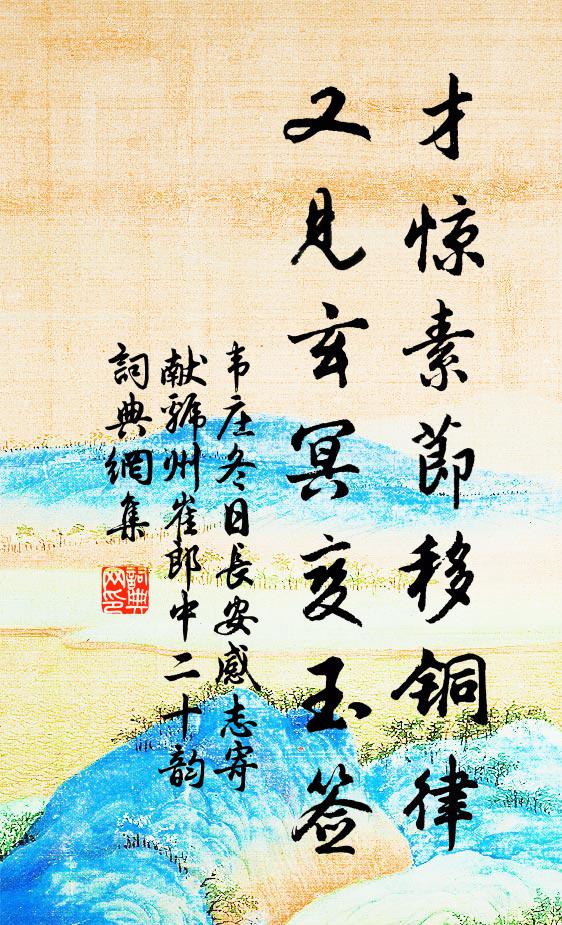 才惊素節移铜律
又見玄冥变玉签
韦庄冬日長安感志寄
献虢州崔郎中二十韵
詞典網集
詞典網印